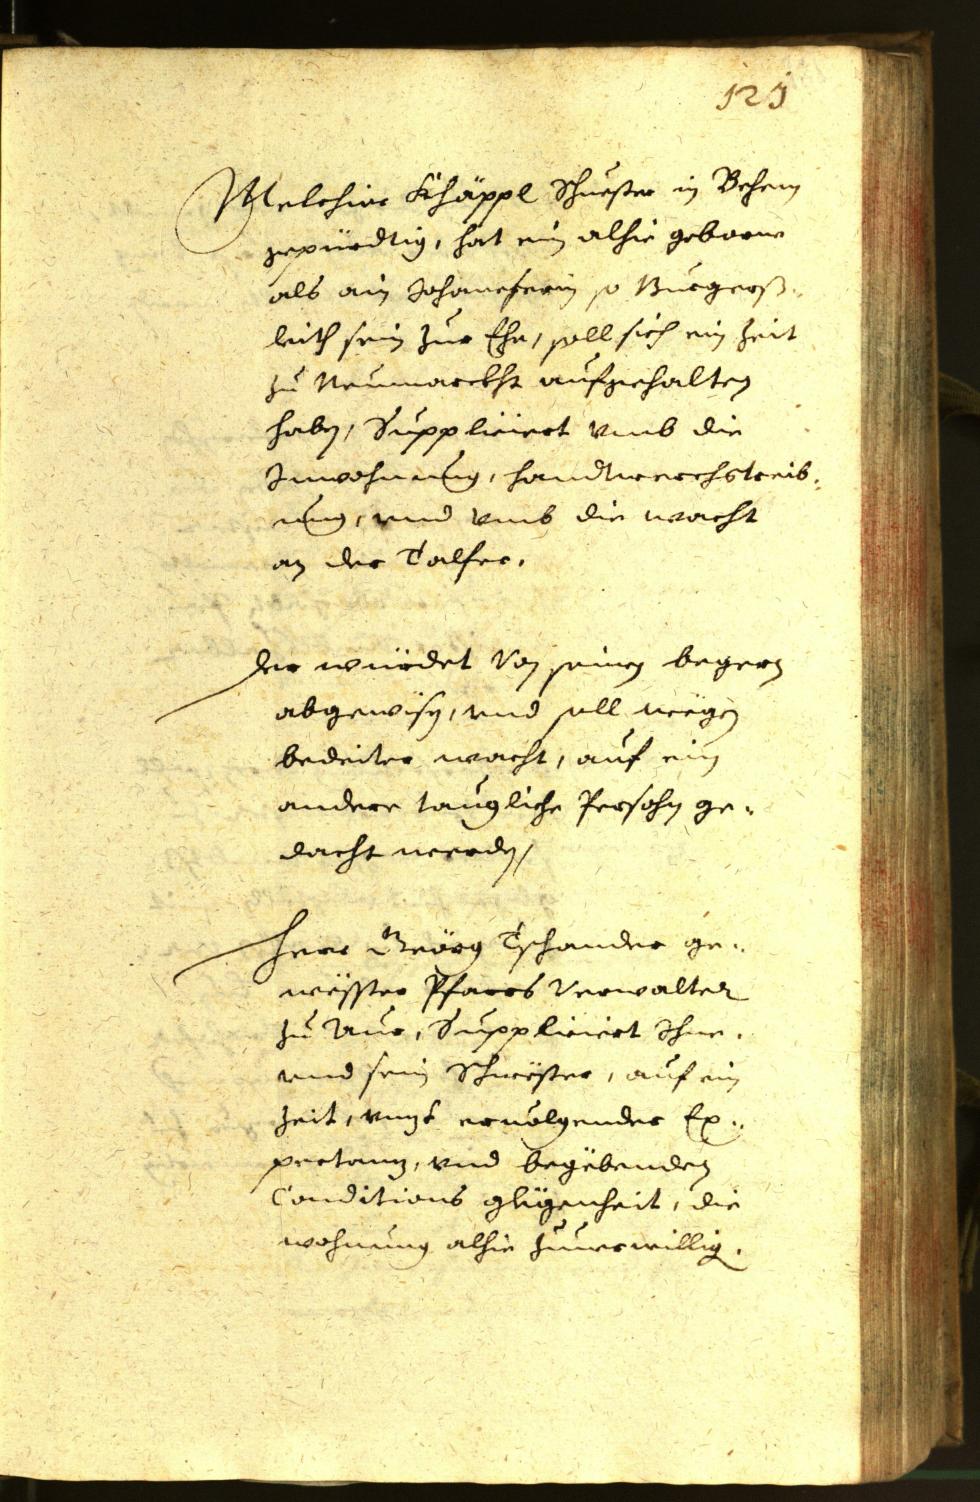 121
Melchior Khäppl Schuester in Behem
gepürdtig, hat ein alhie geborne
als ain so Burgerß¬
leith sein zur Ehe, soll sich ein Zeit
zu Neumarckht aufgehalten
haben, Suppliciert vmb die
Inwohnung, handtwerchstreib¬
ung, vnd vmb die wacht
an der Talfer.
Der würdet von seinen begern
abgewisen, vnd soll wegen
bedeiter wacht, auf ein
andere taugliche Persohn ge¬
dacht werden,
Herr Geörg Tschander ge¬
wester Pfarrs Verwalter
zu Aur, Suppliciert Ihme
vnd sein Schwester, auf ein
Zeit, vnzt ervolgender Ex¬
pectanz, vnd begebenden
Conditions glegenheit, die
wohnung alhie zuuerwillig¬